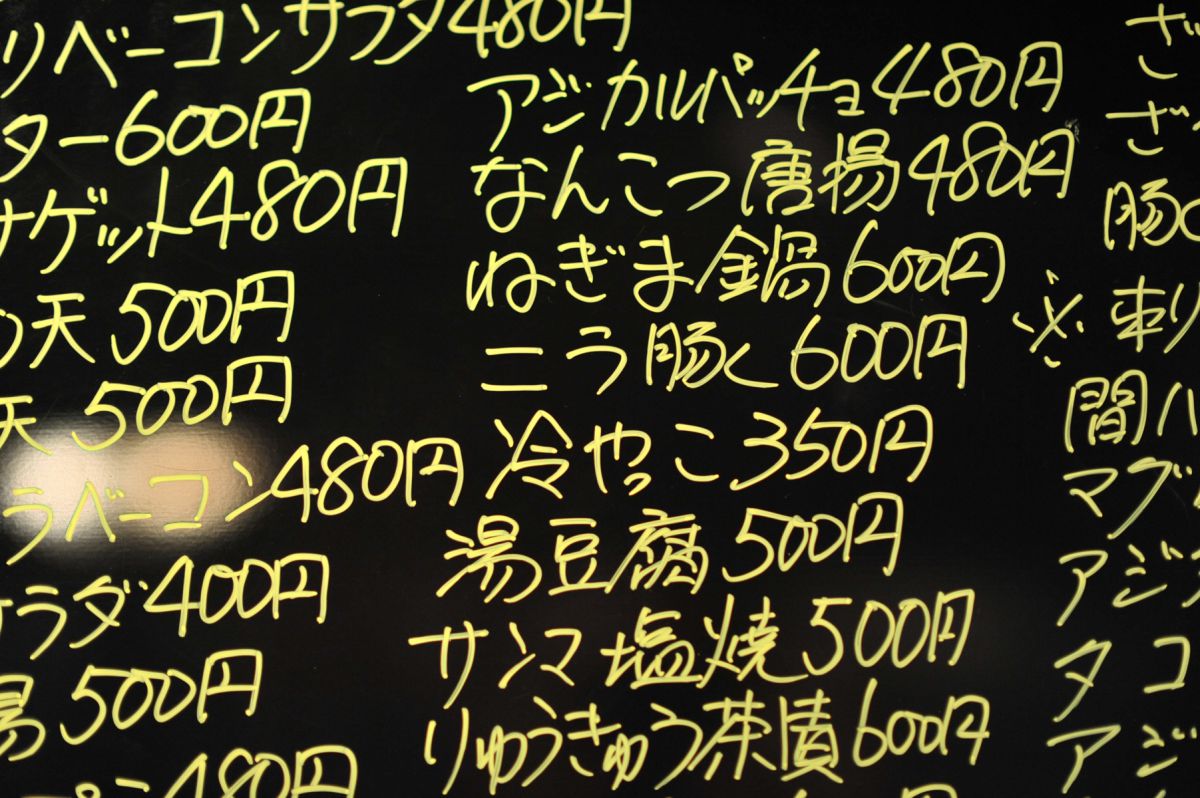 リベーコンサラダ480円
ター600円
ゲット480円
天500円
天500円
ラベーコン480円
ラダ400円
500円
480円
アジカルパッチョ480円
なんこつ唐揚480円
ねぎま鍋600円
ニラ豚く600円
冷やっこ350円
湯豆腐500円
サンマ塩焼500円
りゅうきゅう茶漬600円
ざ
ざ
豚
※刺
関ハ
マグ
アジ
タコ
アジ